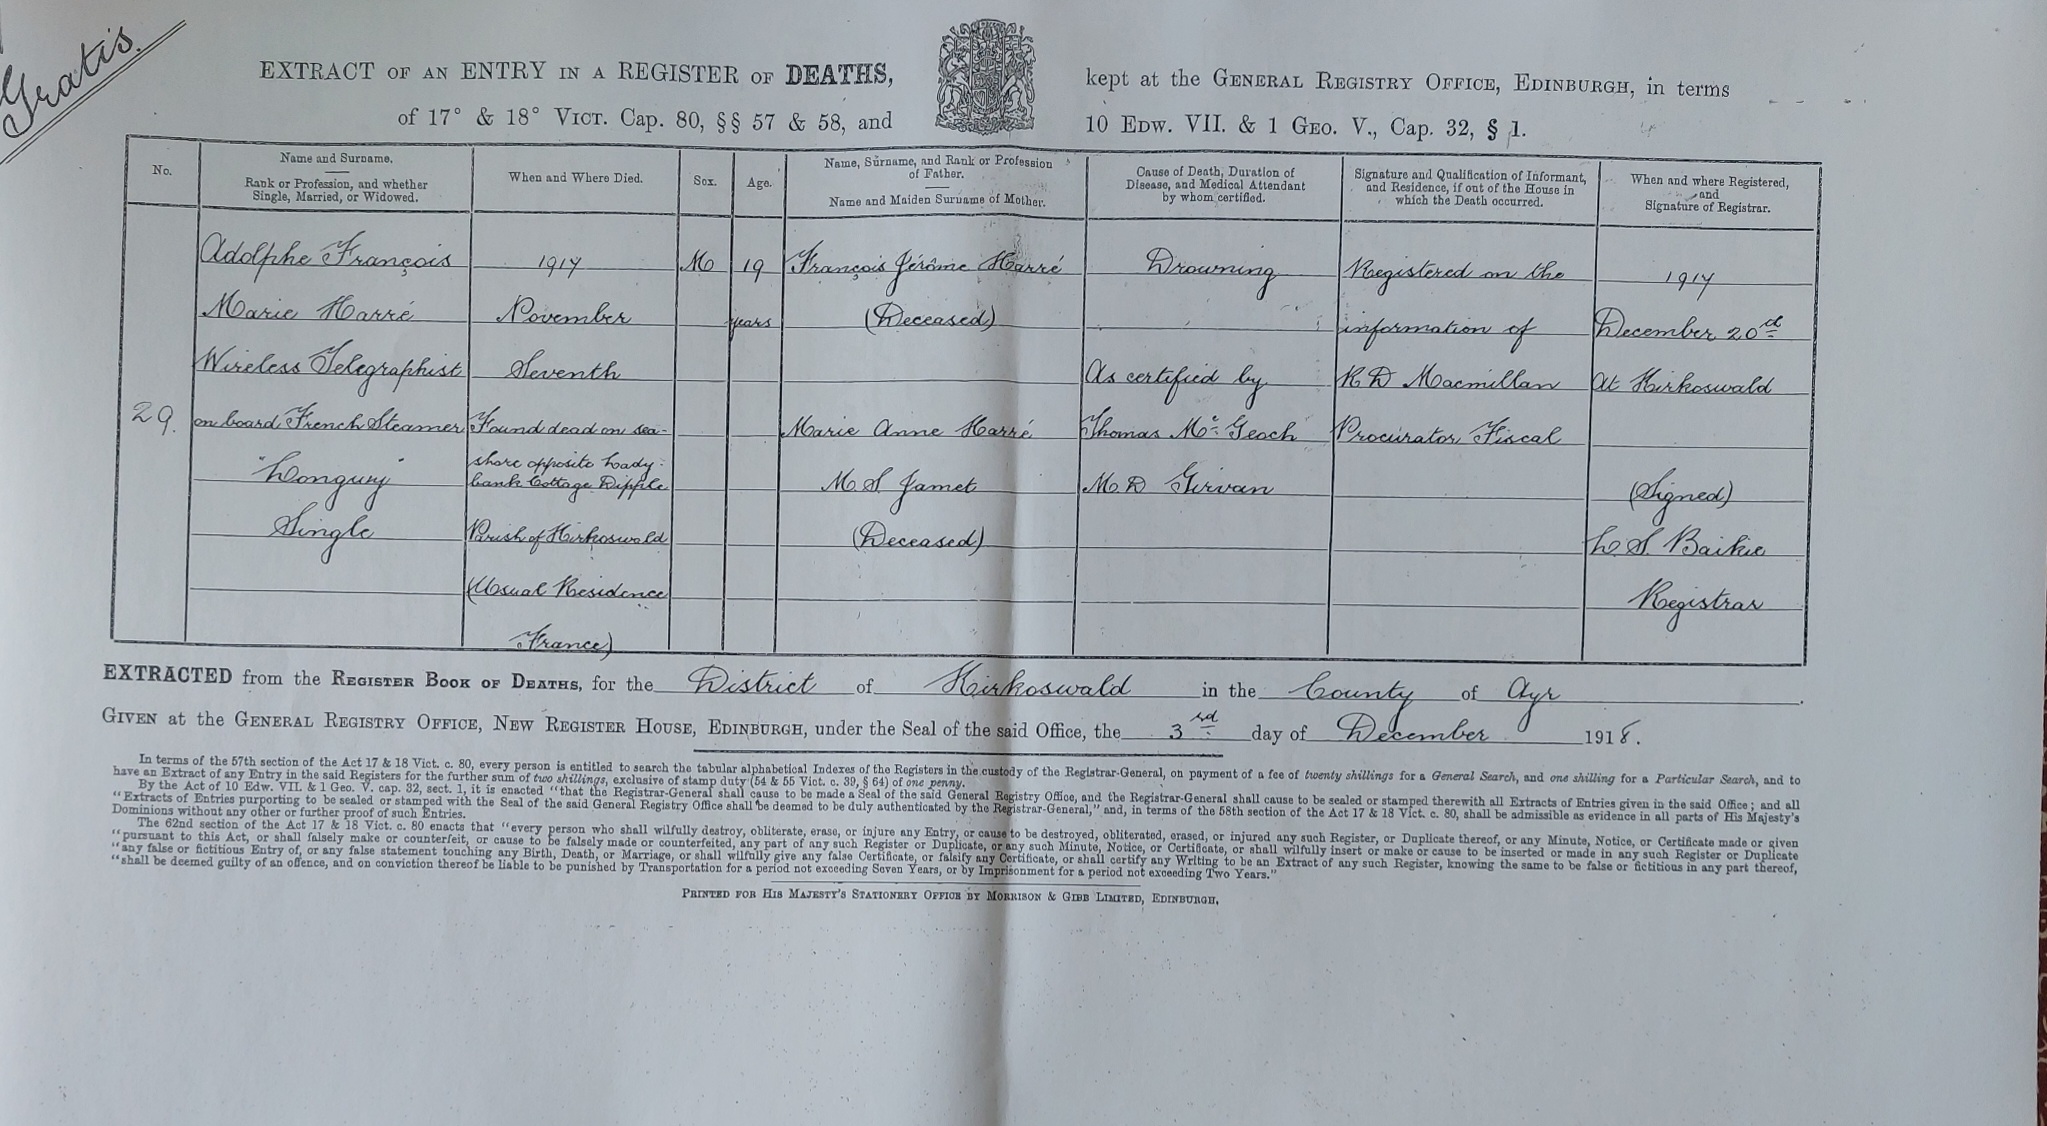 Gratis.
EXTRACT OF AN ENTRY IN A REGISTER OF DEATHS,
kept at the GENERAL REGISTRY OFFICE, EDINBURGH, in terms
of 17° & 18° VICT. Cap. 80, §§ 57 & 58, and
10 EDW. VII. & 1 GEO. V., Cap. 32, § 1.
No.
Name and Surname.
Rank or Profession, and whether
Single, Married, or Widowed.
When and Where Died.
Sex.
Age.
Name, Surname, and Rank or Profession
of Father.
Name and Maiden Surname of Mother.
Cause of Death, Duration of
Disease, and Medical Attendant
by whom certified.
Signature and Qualification of Informant,
and Residence, if out of the House in
which the Death occurred.
When and where Registered,
and
Signature of Registrar.
29.
Adolphe François
Marie Harré
Wireless Telegraphist
on board French Steamer
"Longuny"
Single
1917
November
Seventh
Found dead on sea-
shore opposite Lady-
bank Cottage Dipple
Parish of Kirkoswald
(Usual Residence
France)
M
19
years
François Jérôme Harré
(Deceased)
Marie Anne Harré
M.S. Jamet
(Deceased)
Drowning
As certified by
Thomas Mc Geoch
M.D. Girvan
Registered on the
information of
K D Macmillan
Procurator Fiscal
1917
December 20th
At Kirkoswald
(Signed)
L S Baikie
Registrar
EXTRACTED from the REGISTER BOOK OF DEATHS, for the District of Kirkoswald in the County of Ayr.
GIVEN at the GENERAL REGISTRY OFFICE, NEW REGISTER HOUSE, EDINBURGH, under the Seal of the said Office, the 3rd day of December 1918.
In terms of the 57th section of the Act 17 & 18 Vict. c. 80, every person is entitled to search the tabular alphabetical Indexes of the Registers in the custody of the Registrar-General, on payment of a fee of twenty shillings for a General Search, and one shilling for a Particular Search, and to
have an Extract of any Entry in the said Registers for the further sum of two shillings, exclusive of stamp duty (54 & 55 Vict. c. 39, § 64) of one penny.
By the Act of 10 Edw. VII. & 1 Geo. V. cap. 32, sect. 1, it is enacted "that the Registrar-General shall cause to be made a Seal of the said General Registry Office, and the Registrar-General shall cause to be sealed or stamped therewith all Extracts of Entries given in the said Office; and all
"Extracts of Entries purporting to be sealed or stamped with the Seal of the said General Registry Office shall be deemed to be duly authenticated by the Registrar-General," and, in terms of the 58th section of the Act 17 & 18 Vict. c. 80, shall be admissible as evidence in all parts of His Majesty's
Dominions without any other or further proof of such Entries.
The 62nd section of the Act 17 & 18 Vict. c. 80 enacts that "every person who shall wilfully destroy, obliterate, erase, or injure any Entry, or cause to be destroyed, obliterated, erased, or injured any such Register, or Duplicate thereof, or any Minute, Notice, or Certificate made or given
"pursuant to this Act, or shall falsely make or counterfeit, or cause to be falsely made or counterfeited, any part of any such Register or Duplicate, or any such Minute, Notice, or Certificate, or shall wilfully insert or make or cause to be inserted or made in any such Register or Duplicate
"any false or fictitious Entry of, or any false statement touching any Birth, Death, or Marriage, or shall wilfully give any false Certificate, or falsify any Certificate, or shall certify any Writing to be an Extract of any such Register, knowing the same to be false or fictitious in any part thereof,
"shall be deemed guilty of an offence, and on conviction thereof be liable to be punished by Transportation for a period not exceeding Seven Years, or by Imprisonment for a period not exceeding Two Years."
PRINTED FOR HIS MAJESTY'S STATIONERY OFFICE BY MORRISON & GIBB LIMITED, EDINBURGH.